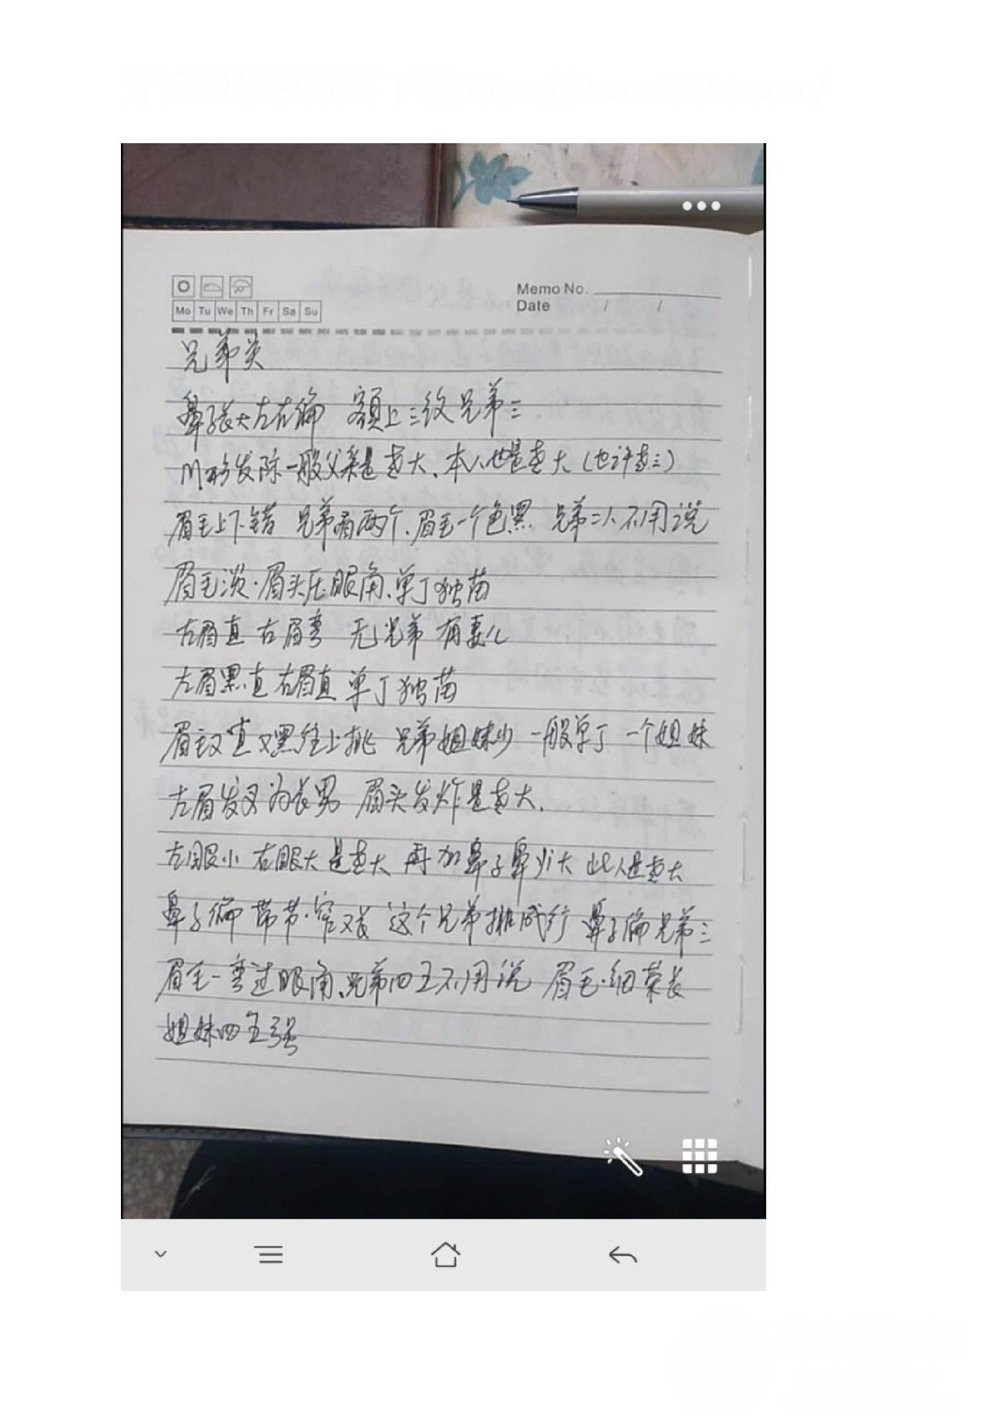 Memo No.
Date / /
Mo Tu We Th Fr Sa Su
兄弟类
鼻子张大左右偏 额上三纹兄弟三
川形发际一般父亲是老大、本人也是老大(也许老三)
眉毛上下错 兄弟有两个、眉毛一个色黑、兄弟二人不用说
眉毛淡·眉头压眼角、单丁独苗
左眉直 右眉弯 无兄弟 有妻儿
左眉黑直右眉直 单丁独苗
眉毛又直又黑往上挑 兄弟姐妹少 一般单丁 一个姐妹
左眉发叉为长男 眉头发炸是老大、
左眼小 右眼大是老大 再加鼻子鼻头大 此人是老大
鼻子偏 带节·窄又长 这个兄弟排成行 鼻子偏兄弟三
眉毛一弯过眼角、兄弟四五不用说 眉毛·细 长
姐妹四五